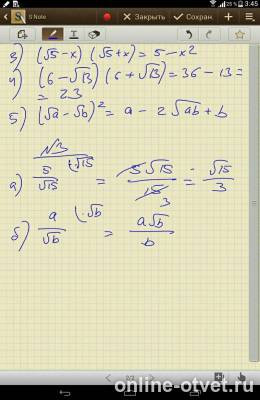 25 % 3:45
S Note Закрыть Сохран.
3) (√5-x) (√5+x) = 5-x2
4) (6-√13) (6+√13) = 36-13=
= 23
5) (√a-√b)² = a - 2√ab + b
√13
a) 5/√15 (·√15 = 5√15/15 = √15/3
3
б) a/√b (·√b = a√b/b
2/2
online-otvet.ru